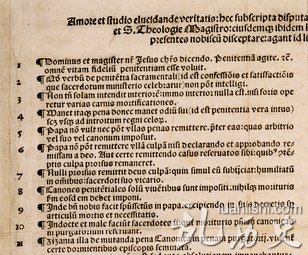 Amore et studio elucidande veritatis: hec subscripta disp
et S. Theologie Magistro: eiusdemq; ibidem
presentes nobiscū disceptare: agant id
1 Dominus et magister nr̄ Jesus chr̄s dicendo. Penitentiā agite. ⁊c.
omnē vitam fideliū penitentiam esse voluit.
2 Qd̄ verbū de penitētia sacramentali (id est cōfessiōis et satisfactiōis
que sacerdotum ministerio celebratur) non pōt intelligi.
3 Non tn̄ solam intendit interiorē: immo interior nulla est. nisi foris ope
retur varias carnis mortificationes.
4 Manet itaq; pena donec manet odiū sui (id est penitentia vera intus)
scꝫ vsq; ad introitum regni celorum.
5 Papa nō vult nec pōt vllas penas remittere. pter eas: quas arbitrio
vel suo vel canonum imposuit.
6 Papa nō pōt remittere vllā culpā nisi declarando et approbando re
missam a deo. Aut certe remittendo casus reservatos sibi: quibꝰ
ptis culpa prorsus remaneret.
7 Nulli prorsus remittit deus culpā: quin simul eū subijciat: humiliatū
in oībus: sacerdoti suo vicario.
8 Canones penitētiales solū viuētibus sunt impositi. nihilq; morituris
9 Inde bn̄ nobis facit spūssctūs in papa. excipiendo in suis decretis sp
articulū mortis et necessitatis.
10 Indocte et male faciūt sacerdotes
in purgatorium reseruant.
11 Zizania illa de mutanda pena Canonica
certe dormientibus episcopis